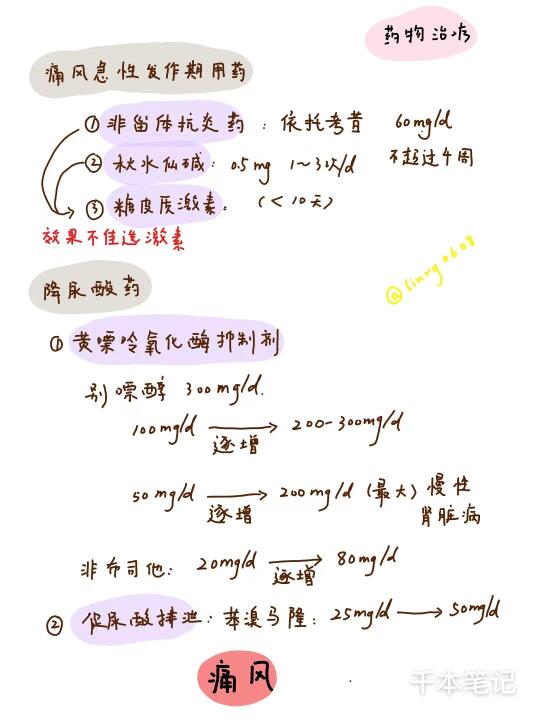 药物治疗
痛风急性发作期用药
① 非甾体抗炎药：依托考昔 60mg/d
② 秋水仙碱：0.5mg 1~3次/d 不超过个周
③ 糖皮质激素：(<10天)
效果不佳选激素
@linry0608
降尿酸药
① 黄嘌呤氧化酶抑制剂
别嘌醇 300mg/d.
100mg/d 逐增 200-300mg/d
50mg/d 逐增 200mg/d (最大) 慢性
肾脏病
非布司他：20mg/d 逐增 80mg/d
② 促尿酸排泄：苯溴马隆：25mg/d 50mg/d
痛风
千本笔记